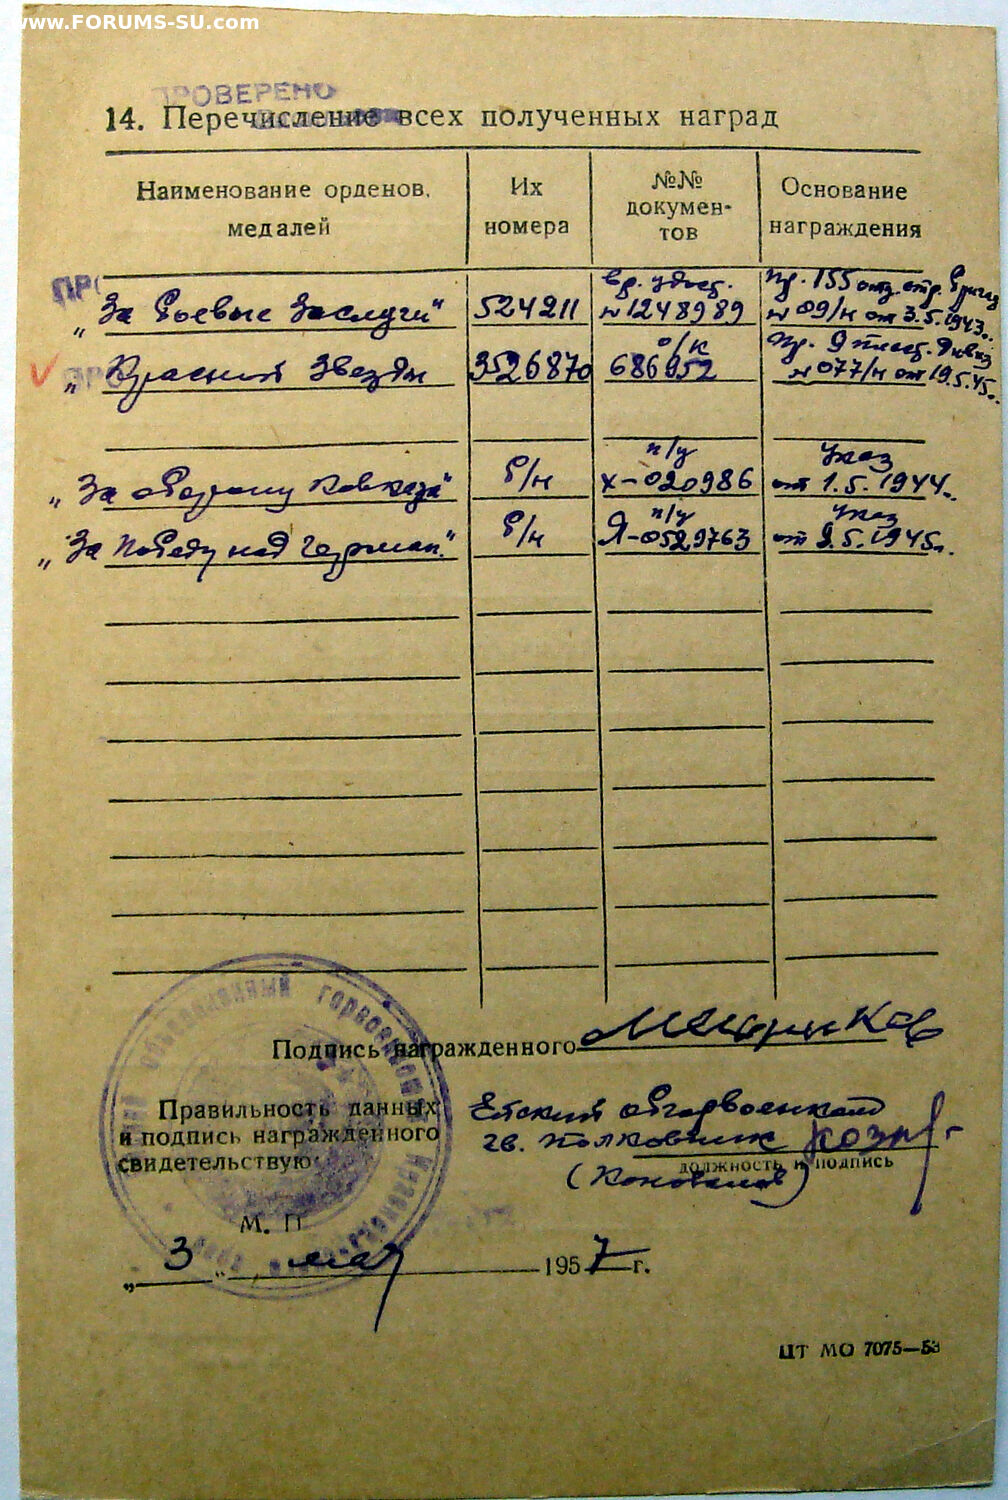 www.FORUMS-SU.com
ПРОВЕРЕНО
14. Перечисление всех полученных наград
Наименование орденов, медалей
Их номера
№№ докумен-тов
Основание награждения
„За боевые заслуги" 524211 вр. удост. № 1248989 пр. 155 отд. стр. бригад № 09/н от 3.5.1943г.
„Красной Звезды 3526870 о/к 686952 пр. 9 пласт. дивиз № 077/н от 19.5.45г.
„За оборону Кавказа" б/н п/у Х-020986 Указ от 1.5.1944г.
„За Победу над Герман." б/н п/у Я-0529763 Указ от 9.5.1945г.
Подпись награжденного
Правильность данных
и подпись награжденного
свидетельствую:
Ейский обгорвоенком
гв. полковник
должность и подпись
(Коновалов)
М. П.
„ 3 " мая 1957 г.
объединенный горвоенкомат
ЦТ МО 7075—53